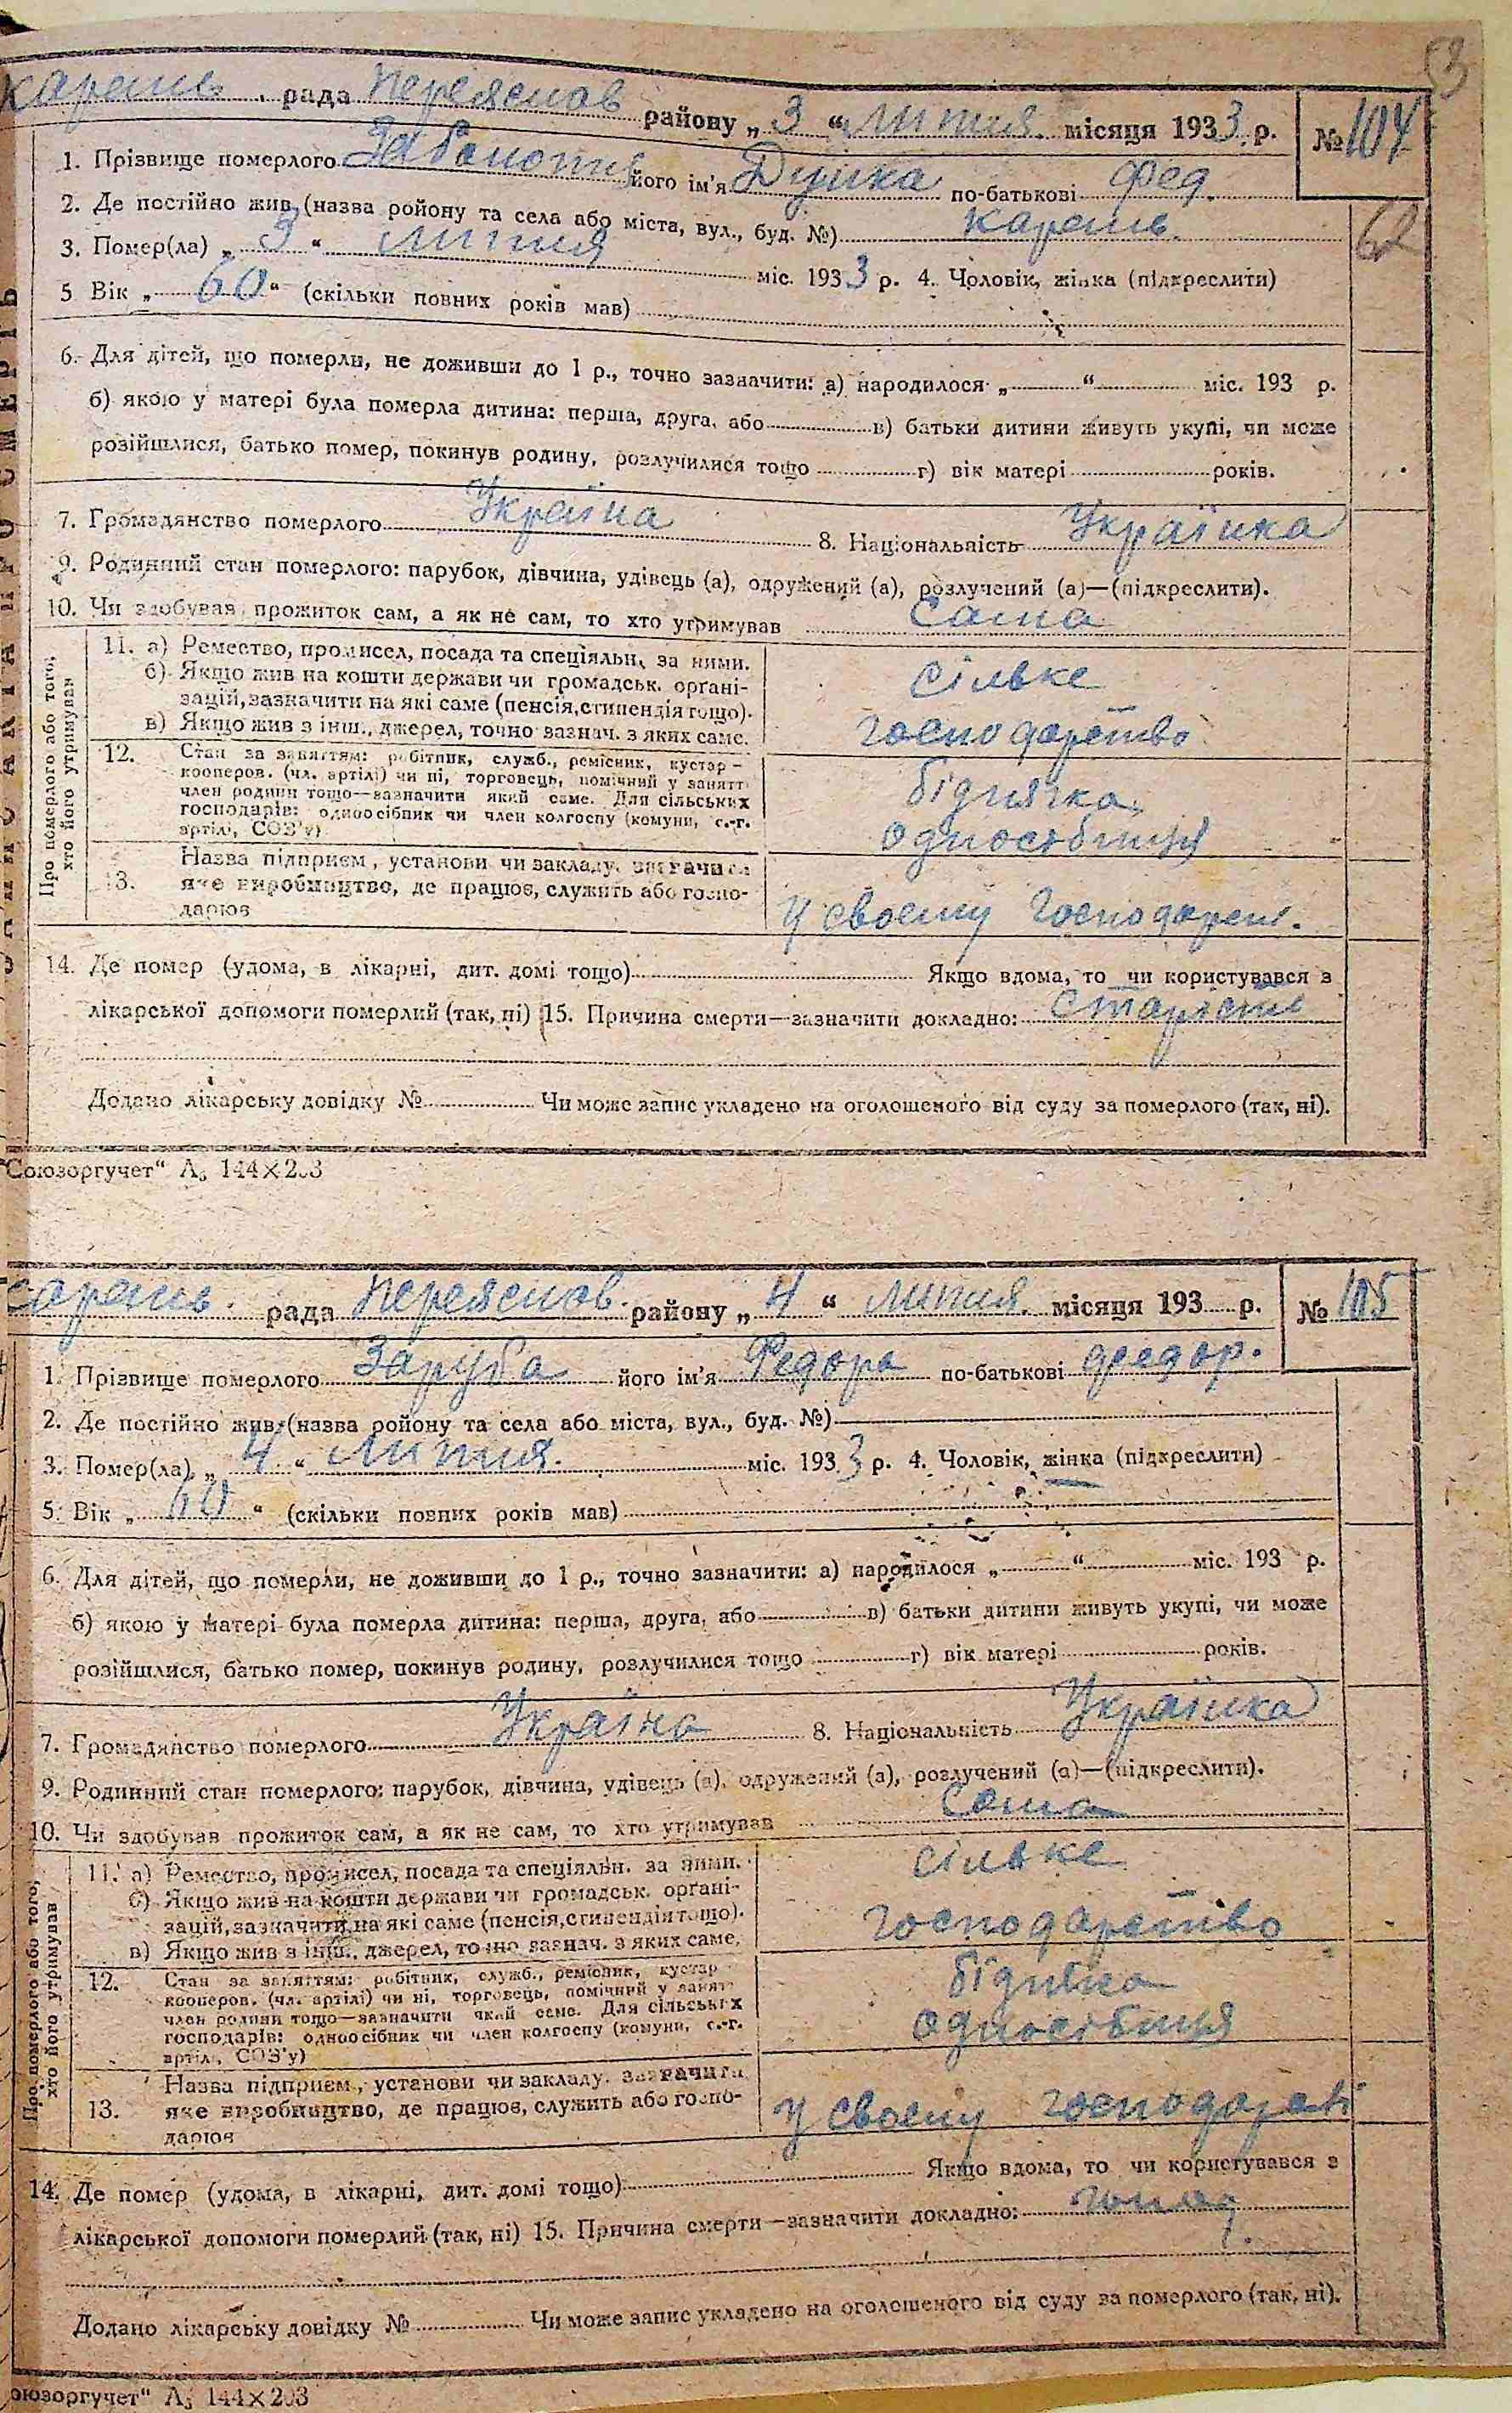 53
Карань рада Переяслов району „ 3 “ липня місяця 1933 р. № 104
1. Прізвище померлого його ім'я по-батькові Фед.
2. Де постійно жив (назва ройону та села або міста, вул., буд. №) Карань.
62
3. Помер(ла) „ 3 “ липня міс. 1933 р. 4. Чоловік, жінка (підкреслити)
5 Вік „ 60 “ (скільки повних років мав)
6. Для дітей, що померли, не доживши до 1 р., точно зазначити: а) народилося „ “ міс. 193 р.
б) якою у матері була померла дитина: перша, друга, або в) батьки дитини живуть укупі, чи може
розійшлися, батько помер, покинув родину, розлучилися тощо г) вік матері років.
7. Громадянство померлого Україна 8. Національність Українка
9. Родинний стан померлого: парубок, дівчина, удівець (а), одружений (а), розлучений (а)—(підкреслити).
10. Чи здобував прожиток сам, а як не сам, то хто утримував Сама
Про померлого або того, хто його утримував
11. а) Ремество, промисел, посада та спеціяльн. за ними.
б) Якщо жив на кошти держави чи громадськ. орґані-
зацій, зазначити на які саме (пенсія, стипендія тощо).
в) Якщо жив з інш., джерел, точно зазнач. з яких саме.
сільке
господарство
12. Стан за заняттям: робітник, служб., ремісник, кустар-
кооперов. (чл. артілі) чи ні, торговець, помічний у занятт
член родини тощо—зазначити який саме. Для сільських
господарів: одноосібник чи член колгоспу (комуни, с.-г.
артілі, СОЗ'у)
біднячка
одноосібниця
13. Назва підприєм., установи чи закладу, зазначити
яке виробництво, де працює, служить або госпо-
дарює
У своєму господарст.
14. Де помер (удома, в лікарні, дит. домі тощо) Якщо вдома, то чи користувався з
лікарської допомоги померлий (так, ні) 15. Причина смерти—зазначити докладно: Старість
Додано лікарську довідку № Чи може запис укладено на оголошеного від суду за померлого (так, ні).
Союзоргучет“ А₅ 144×203
Карань. рада Переяслов. району „ 4 “ липня. місяця 193 р. № 105
1. Прізвище померлого Заруба його ім'я Федора по-батькові Федор.
2. Де постійно жив (назва ройону та села або міста, вул., буд. №)
3. Помер(ла) „ 4 “ липня. міс. 1933 р. 4. Чоловік, жінка (підкреслити)
5. Вік „ 60 “ (скільки повних років мав)
6. Для дітей, що померли, не доживши до 1 р., точно зазначити: а) народилося „ “ міс. 193 р.
б) якою у матері була померла дитина: перша, друга, або в) батьки дитини живуть укупі, чи може
розійшлися, батько помер, покинув родину, розлучилися тощо г) вік матері років.
7. Громадянство померлого Україна 8. Національність Українка
9. Родинний стан померлого: парубок, дівчина, удівець (а), одружений (а), розлучений (а)—(підкреслити).
10. Чи здобував прожиток сам, а як не сам, то хто утримував Сама
Про померлого або того, хто його утримував
11. а) Ремество, промисел, посада та спеціяльн. за ними.
б) Якщо жив на кошти держави чи громадськ. орґані-
зацій, зазначити на які саме (пенсія, стипендія тощо).
в) Якщо жив з інш., джерел, точно зазнач. з яких саме,
сільке
господарство
12. Стан за заняттям: робітник, служб., ремісник, кустар
кооперов. (чл. артілі) чи ні, торговець, помічний у занят
член родини тощо—зазначити який саме. Для сільських
господарів: одноосібник чи член колгоспу (комуни, с.-г.
артілі, СОЗ'у)
одноосібниця
13. Назва підприєм., установи чи закладу, зазначити
яке виробництво, де працює, служить або госпо-
дарює
У своєму господарст
14. Де помер (удома, в лікарні, дит. домі тощо) Якщо вдома, то чи користувався з
лікарської допомоги померлий (так, ні) 15. Причина смерти—зазначити докладно: голод.
Додано лікарську довідку № Чи може запис укладено на оголошеного від суду за померлого (так, ні).
оюзоргучет“ А₅ 144×203